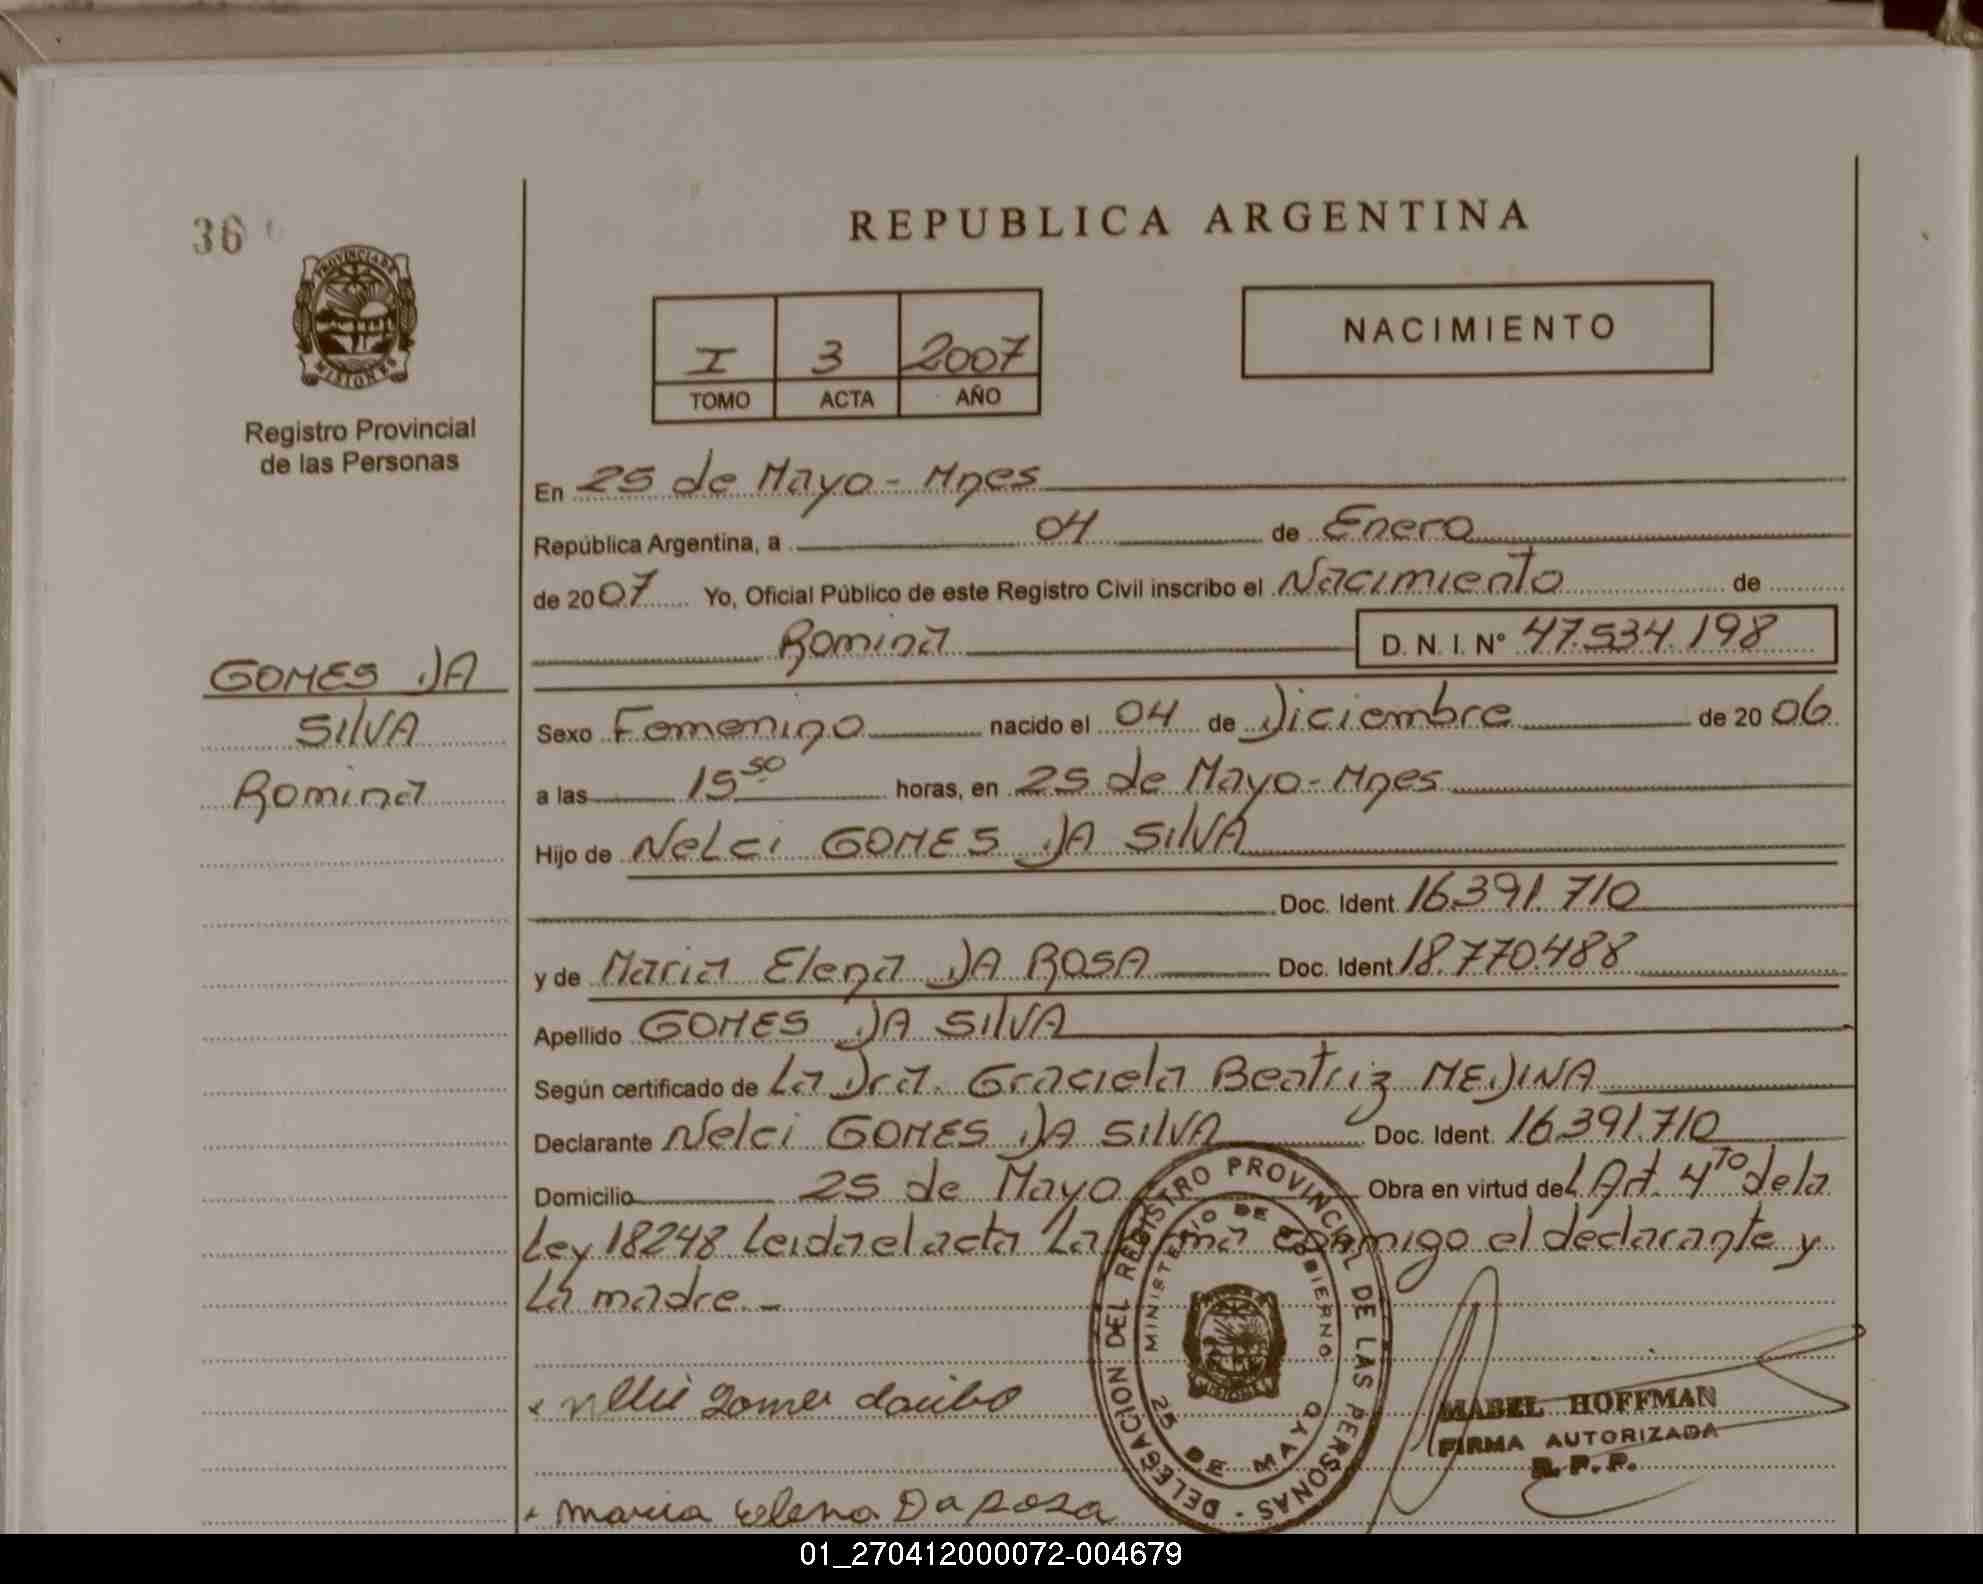 36
REPUBLICA ARGENTINA
PROVINCIA DE
MISIONES
Registro Provincial
de las Personas
I 3 2007
TOMO ACTA AÑO
NACIMIENTO
En 25 de Mayo - Mnes
República Argentina, a 04 de Enero
de 2007 Yo, Oficial Público de este Registro Civil inscribo el Nacimiento de
Romina D. N. I. Nº 47.534.198
GOMES DA
SILVA
Romina
Sexo Femenino nacido el 04 de Diciembre de 2006
a las 15 50 horas, en 25 de Mayo - Mnes
Hijo de Nelci GOMES DA SILVA
Doc. Ident. 16.391.710
y de Maria Elena DA ROSA Doc. Ident. 18.770.488
Apellido GOMES DA SILVA
Según certificado de La Dra. Graciela Beatriz MEDINA
Declarante Nelci GOMES DA SILVA Doc. Ident. 16.391.710
Domicilio 25 de Mayo Obra en virtud del Art. 4to de la
Ley 18248 Leida el acta La firma conmigo el declarante y
La madre. -
DELEGACION DEL REGISTRO PROVINCIAL DE LAS PERSONAS -
MINISTERIO DE GOBIERNO
25 DE MAYO
MISIONES
MABEL HOFFMAN
FIRMA AUTORIZADA
R. P. P.
maria elena Da Rosa
01_270412000072-004679